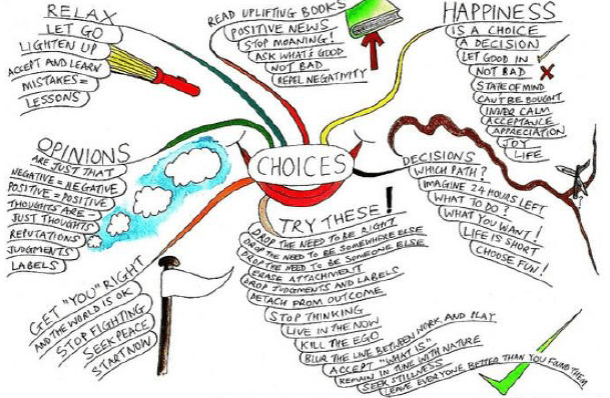 RELAX
LET GO
LIGHTEN UP
ACCEPT AND LEARN
MISTAKES =
LESSONS
READ UPLIFTING BOOKS
POSITIVE NEWS
STOP MOANING!
ASK WHAT'S GOOD
NOT BAD
REPEL NEGATIVITY
HAPPINESS
IS A CHOICE
A DECISION
LET GOOD IN
NOT BAD
STATE OF MIND
CAN'T BE BOUGHT
INNER CALM
ACCEPTANCE
APPRECIATION
JOY
LIFE
OPINIONS
ARE JUST THAT
NEGATIVE = NEGATIVE
POSITIVE = POSITIVE
THOUGHTS ARE
JUST THOUGHTS
REPUTATIONS
JUDGMENTS
LABELS
CHOICES
DECISIONS
WHICH PATH?
IMAGINE 24 HOURS LEFT
WHAT TO DO?
WHAT YOU WANT!
LIFE IS SHORT
CHOOSE FUN!
?
GET "YOU" RIGHT
AND THE WORLD IS OK
STOP FIGHTING
SEEK PEACE
START NOW
TRY THESE!
DROP THE NEED TO BE RIGHT
DROP THE NEED TO BE SOMEWHERE ELSE
DROP THE NEED TO BE SOMEONE ELSE
ERASE ATTACHMENT
DROP JUDGMENTS AND LABELS
DETACH FROM OUTCOME
STOP THINKING
LIVE IN THE NOW
KILL THE EGO
BLUR THE LINE BETWEEN WORK AND PLAY
ACCEPT "WHAT IS"
REMAIN IN TUNE WITH NATURE
SEEK STILLNESS
LEAVE EVERYONE BETTER THAN YOU FOUND THEM